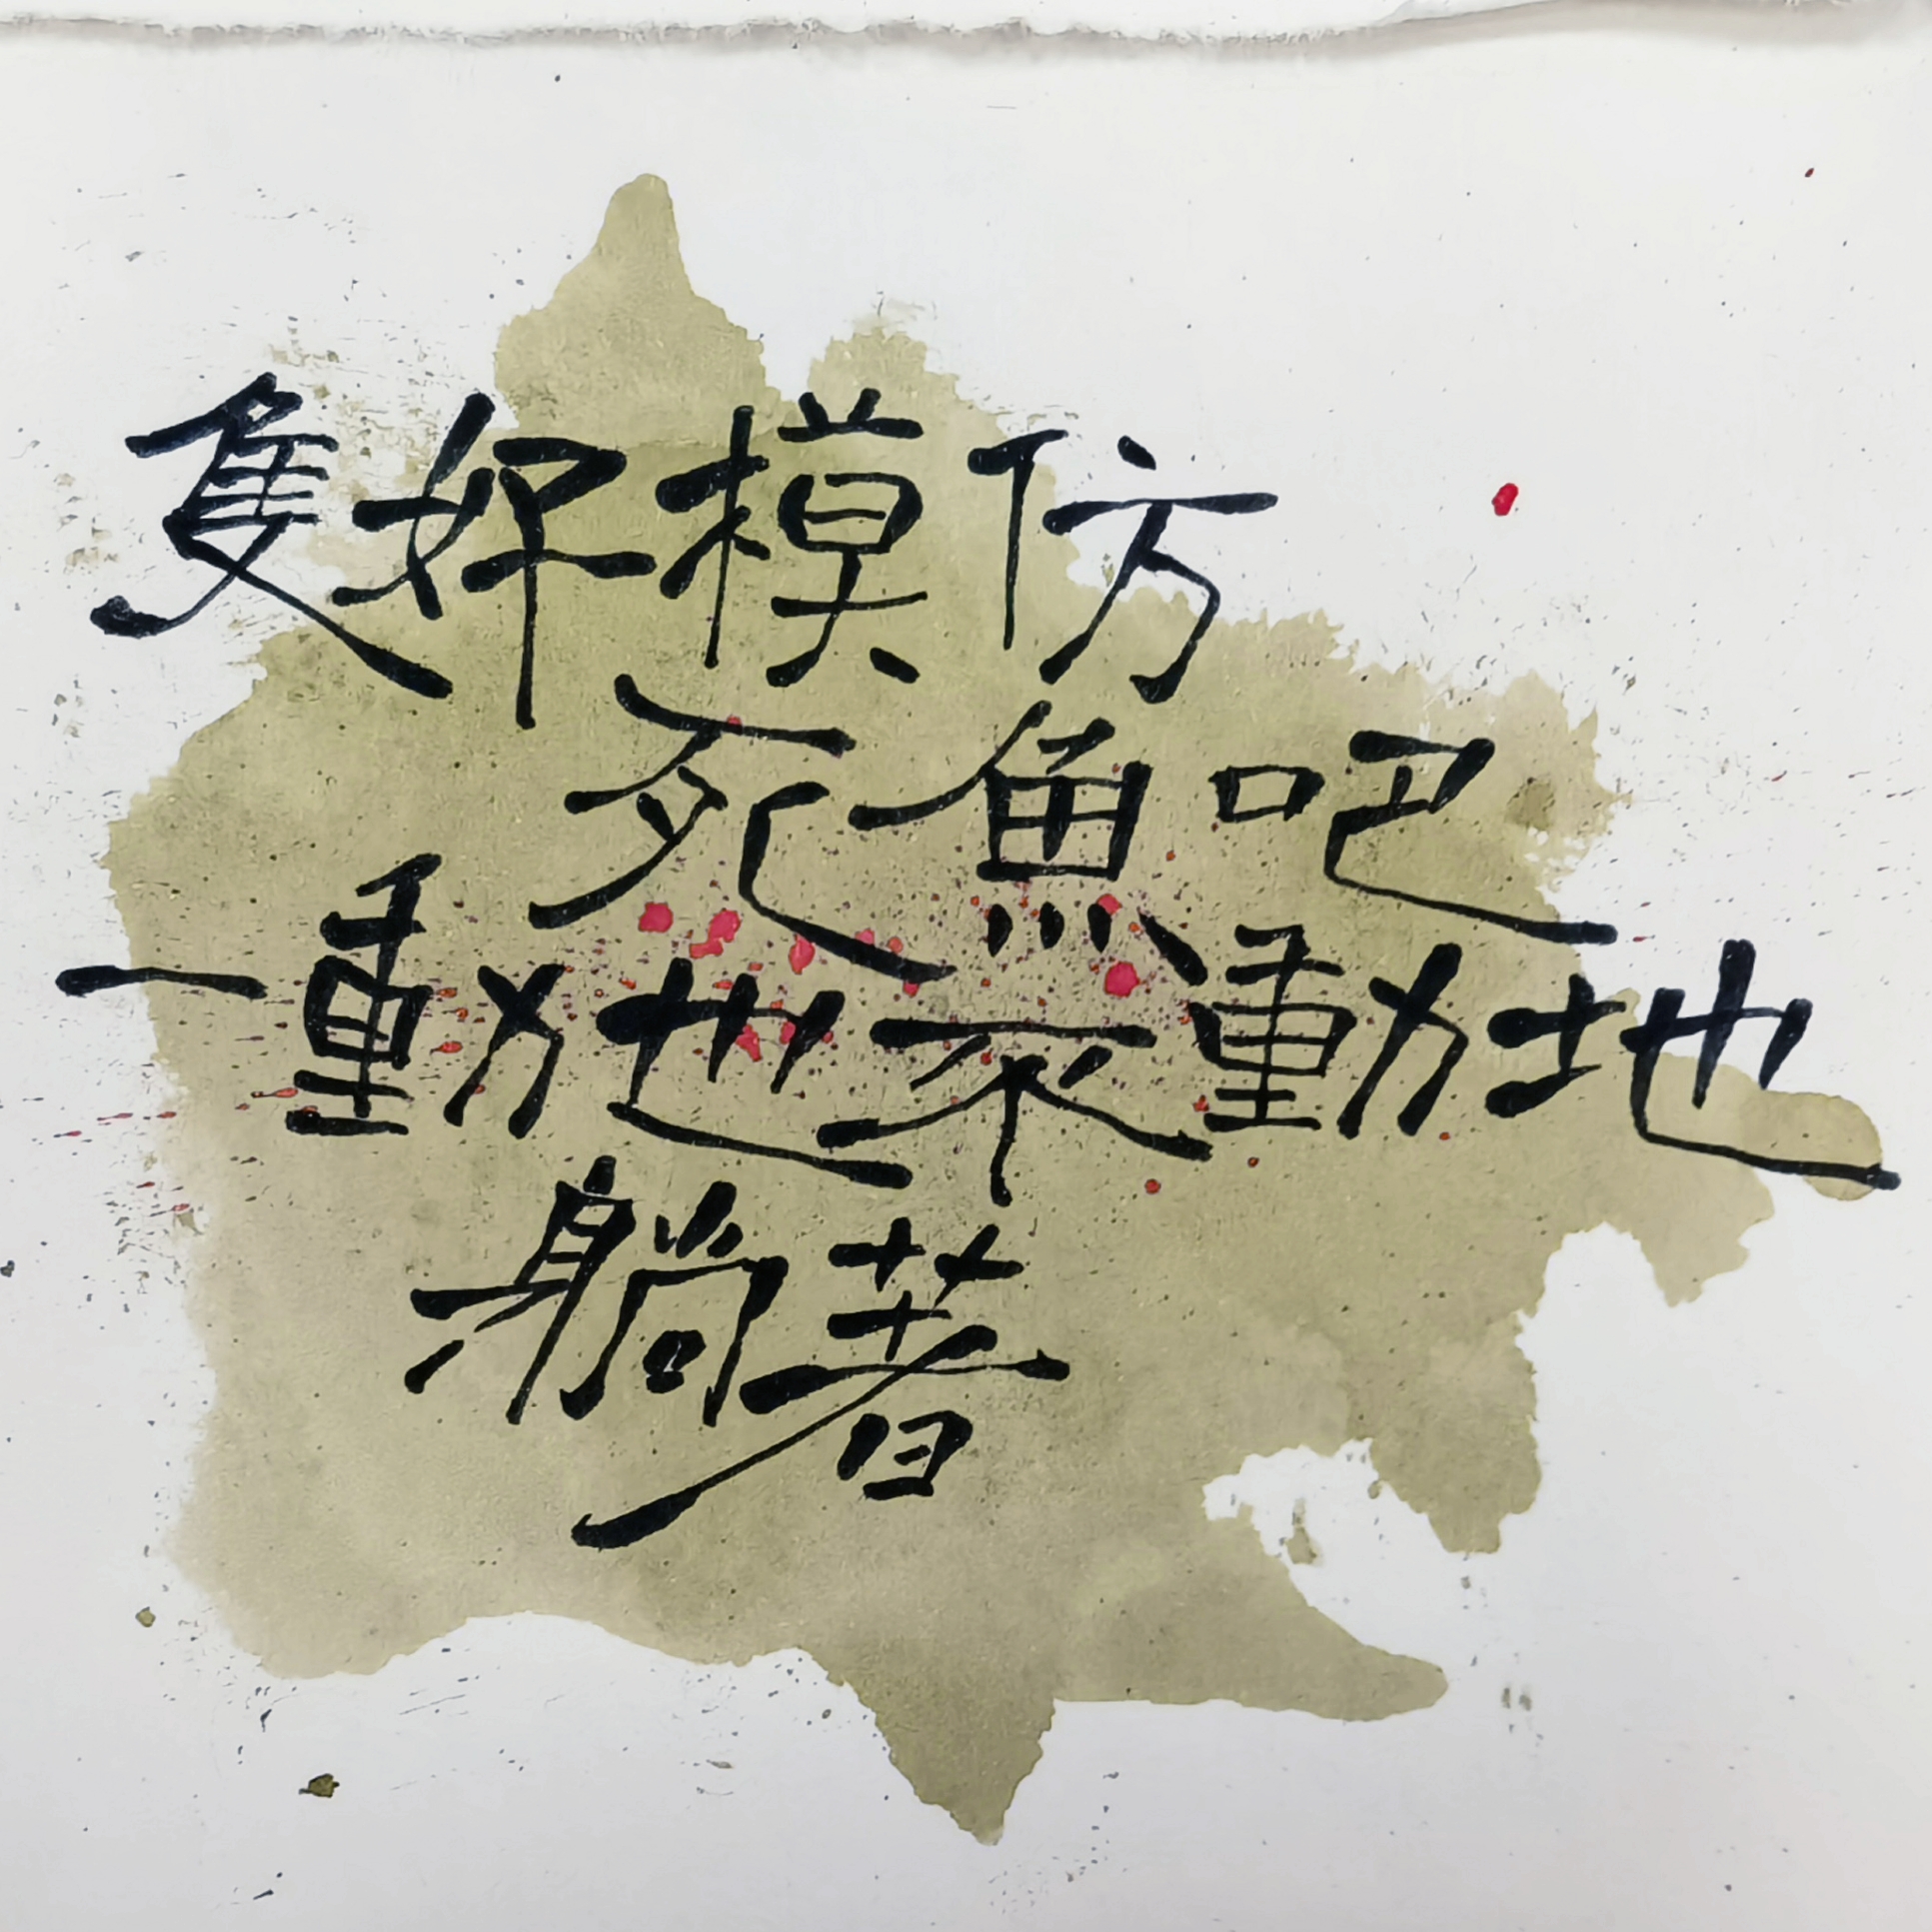 隻好模仿
死魚吧
一動也不動地
躺著